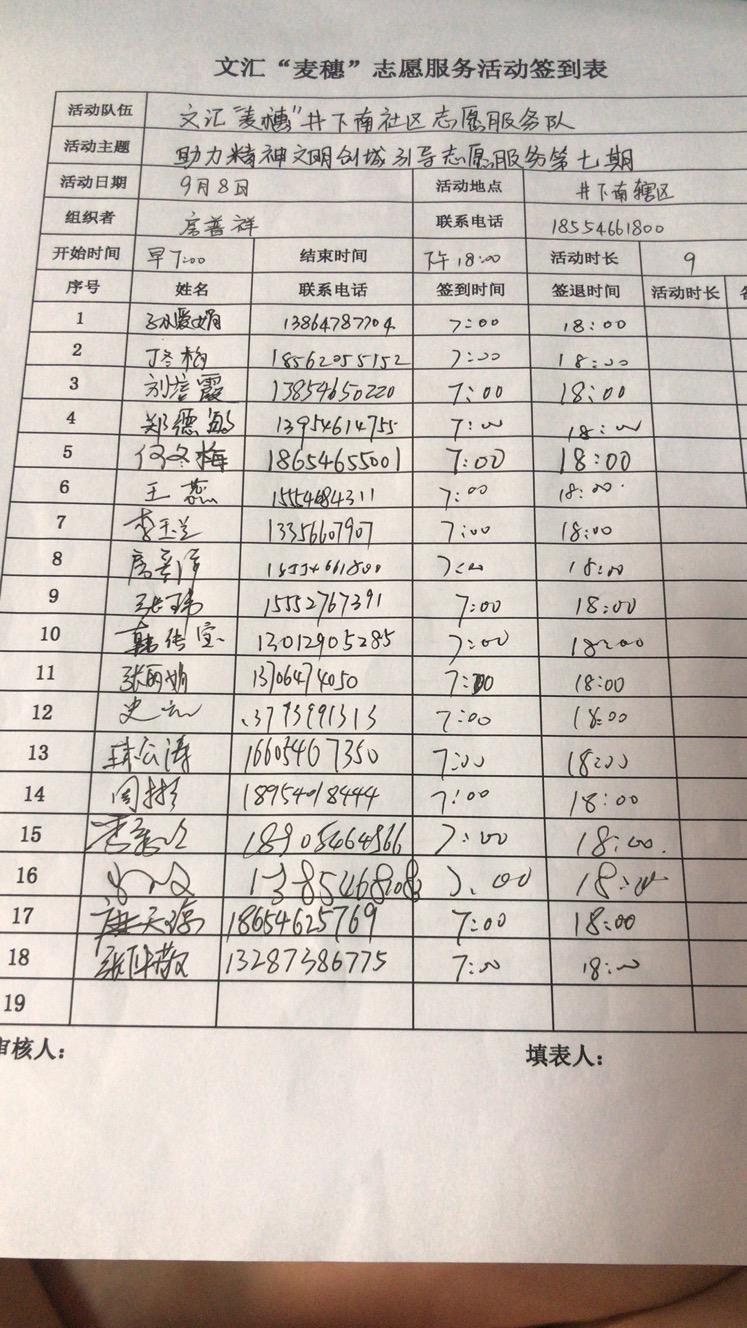 文汇“麦穗”志愿服务活动签到表
活动队伍 文汇"麦穗"井下南社区志愿服务队
活动主题 助力精神文明创城引导志愿服务第七期
活动日期 9月8日 活动地点 井下南辖区
组织者 房普祥 联系电话 18554661800
开始时间 早7:00 结束时间 下午18:00 活动时长 9
序号 姓名 联系电话 签到时间 签退时间 活动时长
1 13864787704 7:00 18:00
2 丁冬梅 18562055152 7:00 18:00
3 刘信霞 13854650220 7:00 18:00
4 郑德 13954614755 7:00 18:00
5 何冬梅 18654655001 7:00 18:00
6 王蕊 15554684311 7:00 18:00
7 李玉兰 13356607907 7:00 18:00
8 房普祥 18554661800 7:00 18:00
9 张玮 15552767391 7:00 18:00
10 韩传宝 13012905285 7:00 18:00
11 张丽娟 13706474050 7:00 18:00
12 史 13793991313 7:00 18:00
13 16605467350 7:00 18:00
14 周 18954018444 7:00 18:00
15 李 18905464566 7:00 18:00
16 7:00 18:00
17 18654625769 7:00 18:00
18 张 13287386775 7:00 18:00
19
审核人： 填表人：